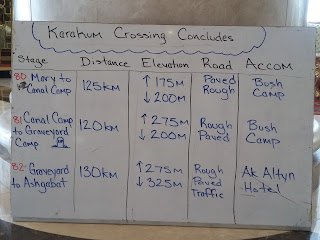 Karakum Crossing Concludes
Stage Distance Elevation Road Accom
80 Mary to Canal Camp 125km ↑ 175m ↓ 200m Paved Rough Bush Camp
81 Canal Camp to Graveyard Camp 120km ↑ 275m ↓ 200m Rough Paved Bush Camp
82 Graveyard to Ashgabat 130km ↑ 275m ↓ 325m Rough Paved Traffic Ak Altyn Hotel